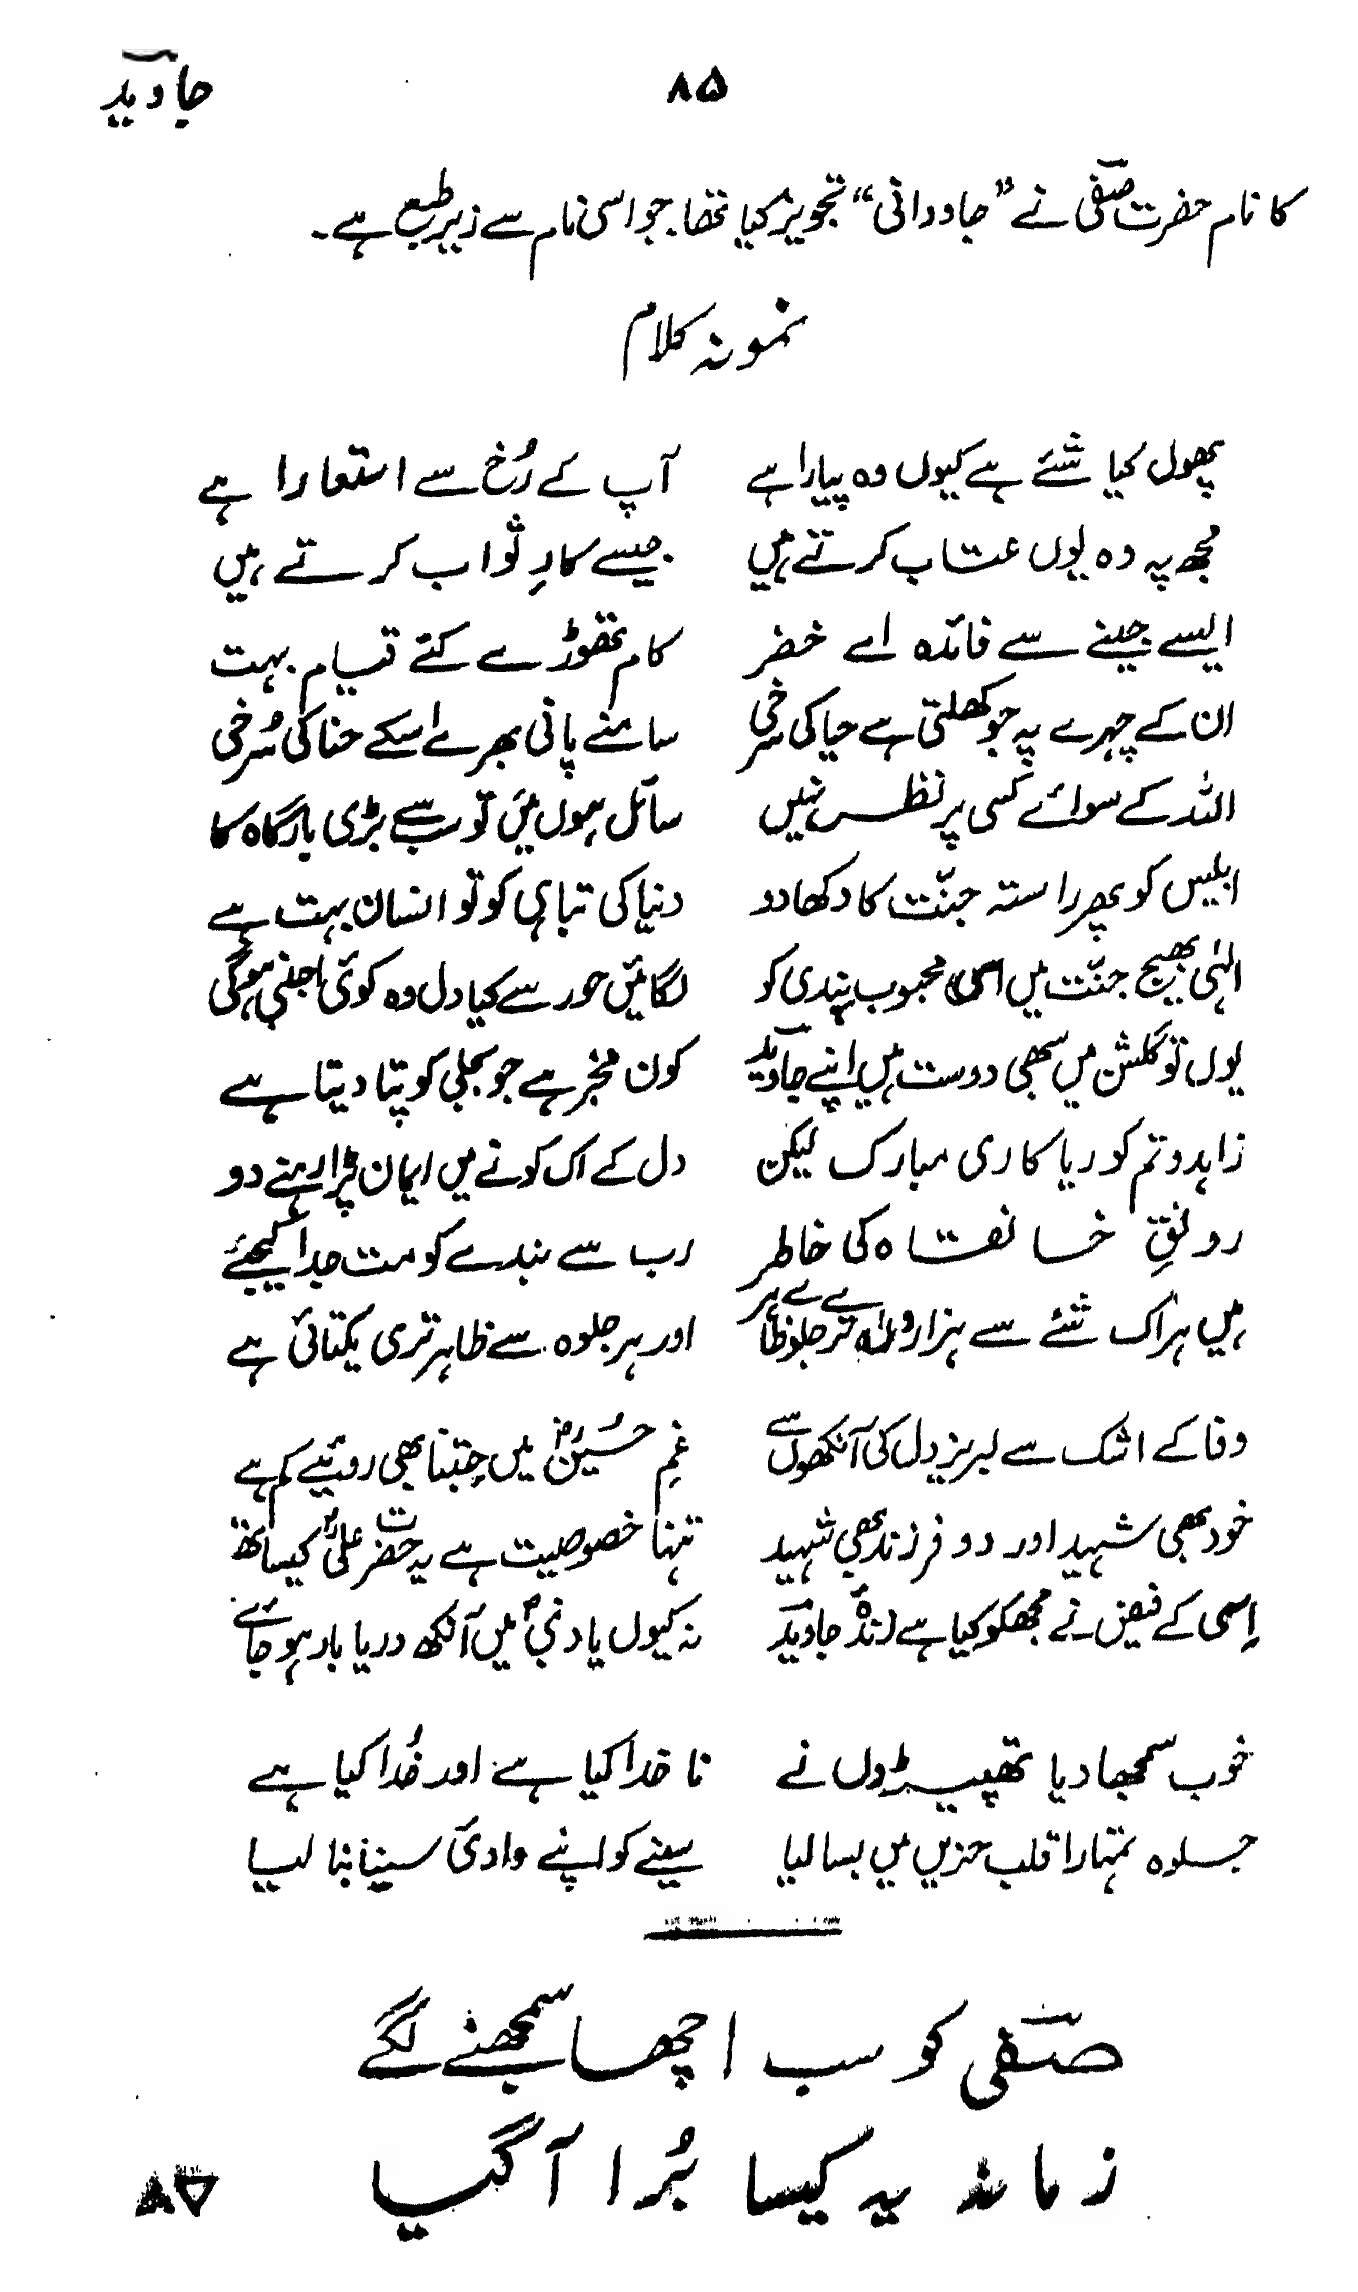 جاوید
۸۵
کا نام حضرت صفی نے "جاودانی" تجویز کیا تھا جو اسی نام سے زیر طبع ہے۔
نمونہ کلام
پھول کیا شئے ہے کیوں وہ پیارا ہے آپ کے رُخ سے استعارا ہے
مجھ پہ وہ یوں عتاب کرتے ہیں جیسے کارِ ثواب کرتے ہیں
ایسے جینے سے فائدہ اے خضر کام تھوڑے کئے قیام بہت
ان کے چہرے پہ جو کھلتی ہے حیا کی سرخی سامنے پانی بھرے اسکے حنا کی سُرخی
اللہ کے سوائے کسی پر نظر نہیں سائل ہوں میں تو سب سے بڑی بارگاہ کا
ابلیس کو پھر راستہ جنّت کا دکھا دو دنیا کی تباہی کو تو انسان بہت ہے
الہٰی بھیج جنّت میں اسی محبوب بندی کو لگائیں حور سے کیا دل وہ کوئی اجنبی ہوگی
یوں تو گلشن میں سبھی دوست ہیں اپنے جاوید کون مخبر ہے جو بجلی کو پتا دیتا ہے
زاہدو تم کو ریا کاری مبارک لیکن دل کے اک کونے میں ایمان پڑا رہنے دو
رونقِ خانقاہ کی خاطر رب سے بندے کو مت جدا کیجئے
ہیں ہر اک شئے سے ہزاروں ترے جلوے ظاہر اور ہر جلوہ سے ظاہر تری یکتائی ہے
وفا کے اشک سے لبریز دل کی آنکھوں سے غمِ حسُینؓ میں جِتنا بھی روئیے کم ہے
خود بھی شہید اور دو فرزند بھی شہید تنہا خصوصیت ہے یہ حضرت علیؓ کیساتھ
اِسی کے فیض نے مجھکو کیا ہے زندۂ جاوید نہ کیوں یادِ نبیؐ میں آنکھ دریا بار ہو جائے
خوب سمجھا دیا تھپیڑوں نے نا خدا کیا ہے اور خُدا کیا ہے
جلوہ تمہارا قلب حزیں میں بسا لیا سینے کو اپنے وادیٔ سینا بنا لیا
صفی کو سب اچھا سمجھنے لگے
زمانہ یہ کیسا بُرا آ گیا
۸۵